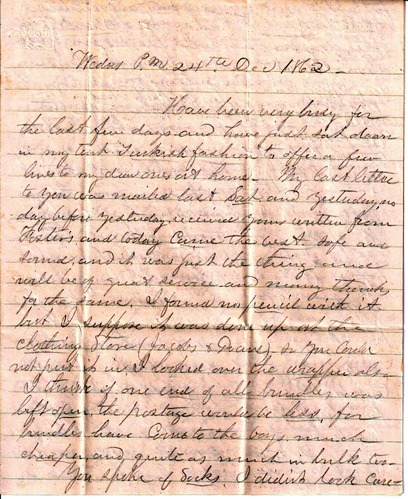 Wednes P.M. 24th Dec 1862 -
Have been very busy for
the last few days and have just sat down
in my tent Turkish fashion to offer a few
lines to my dear ones at home - My last letter
to you was mailed last Sat. and yesterday no
day before yesterday, received yours written from
and today came the vest. safe and
sound, and it was just the thing and
will be of great service and many thanks
for the same. I found no pencil with it
but I suppose it was done up at the
Clothing Store (Jacobs & Deane) so you could
not put it in. I looked over the wrapper also
I think if one end of all bundles was
left open, the postage would be less, for
bundles have come to the boys much
cheaper and quite as much in bulk too
You spoke of Socks. I didn't look care-